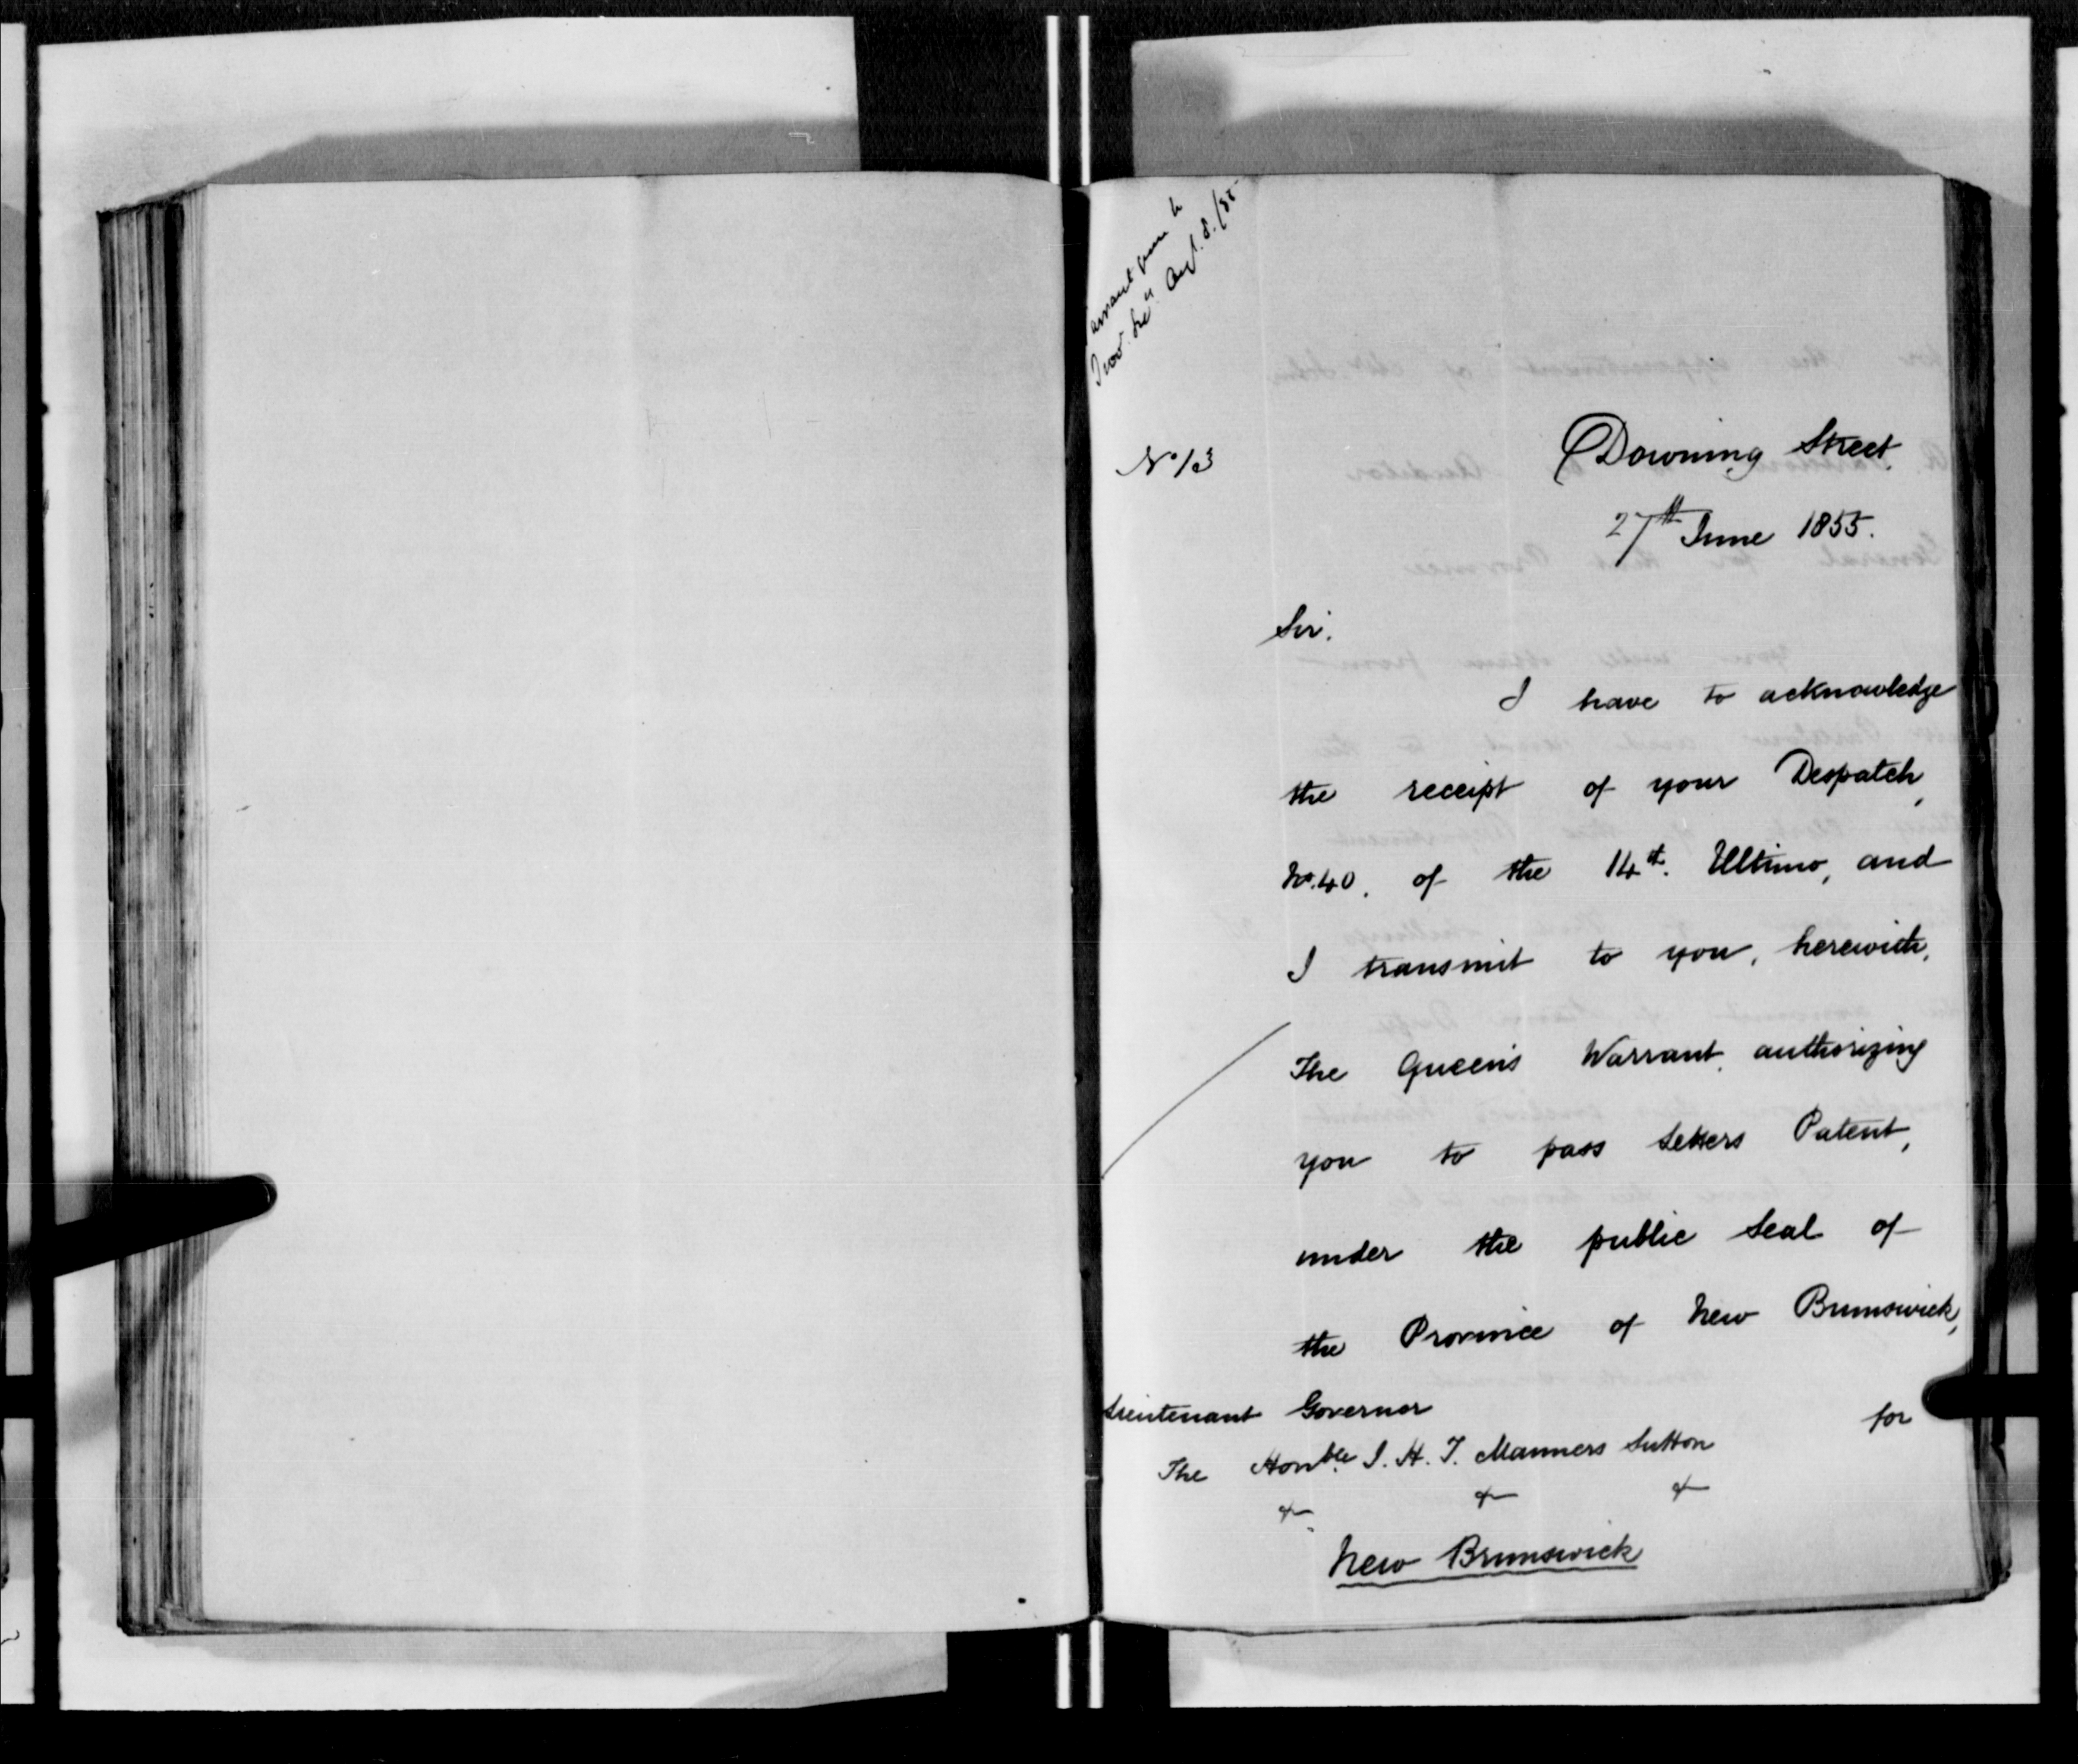 Warrant given to
Prov. Secy. Augt. 8./55
No 13
Downing Street.
27th June 1855.
Sir.
I have to acknowledge
the receipt of your Despatch,
No. 40. of the 14th. Ultimo, and
I transmit to you, herewith,
The Queen's Warrant, authorizing
you to pass Letters Patent,
under the public Seal of
the Province of New Brunswick,
for
Lieutenant Governor
The Honble. J. H. T. Manners Sutton
& & &
New Brunswick